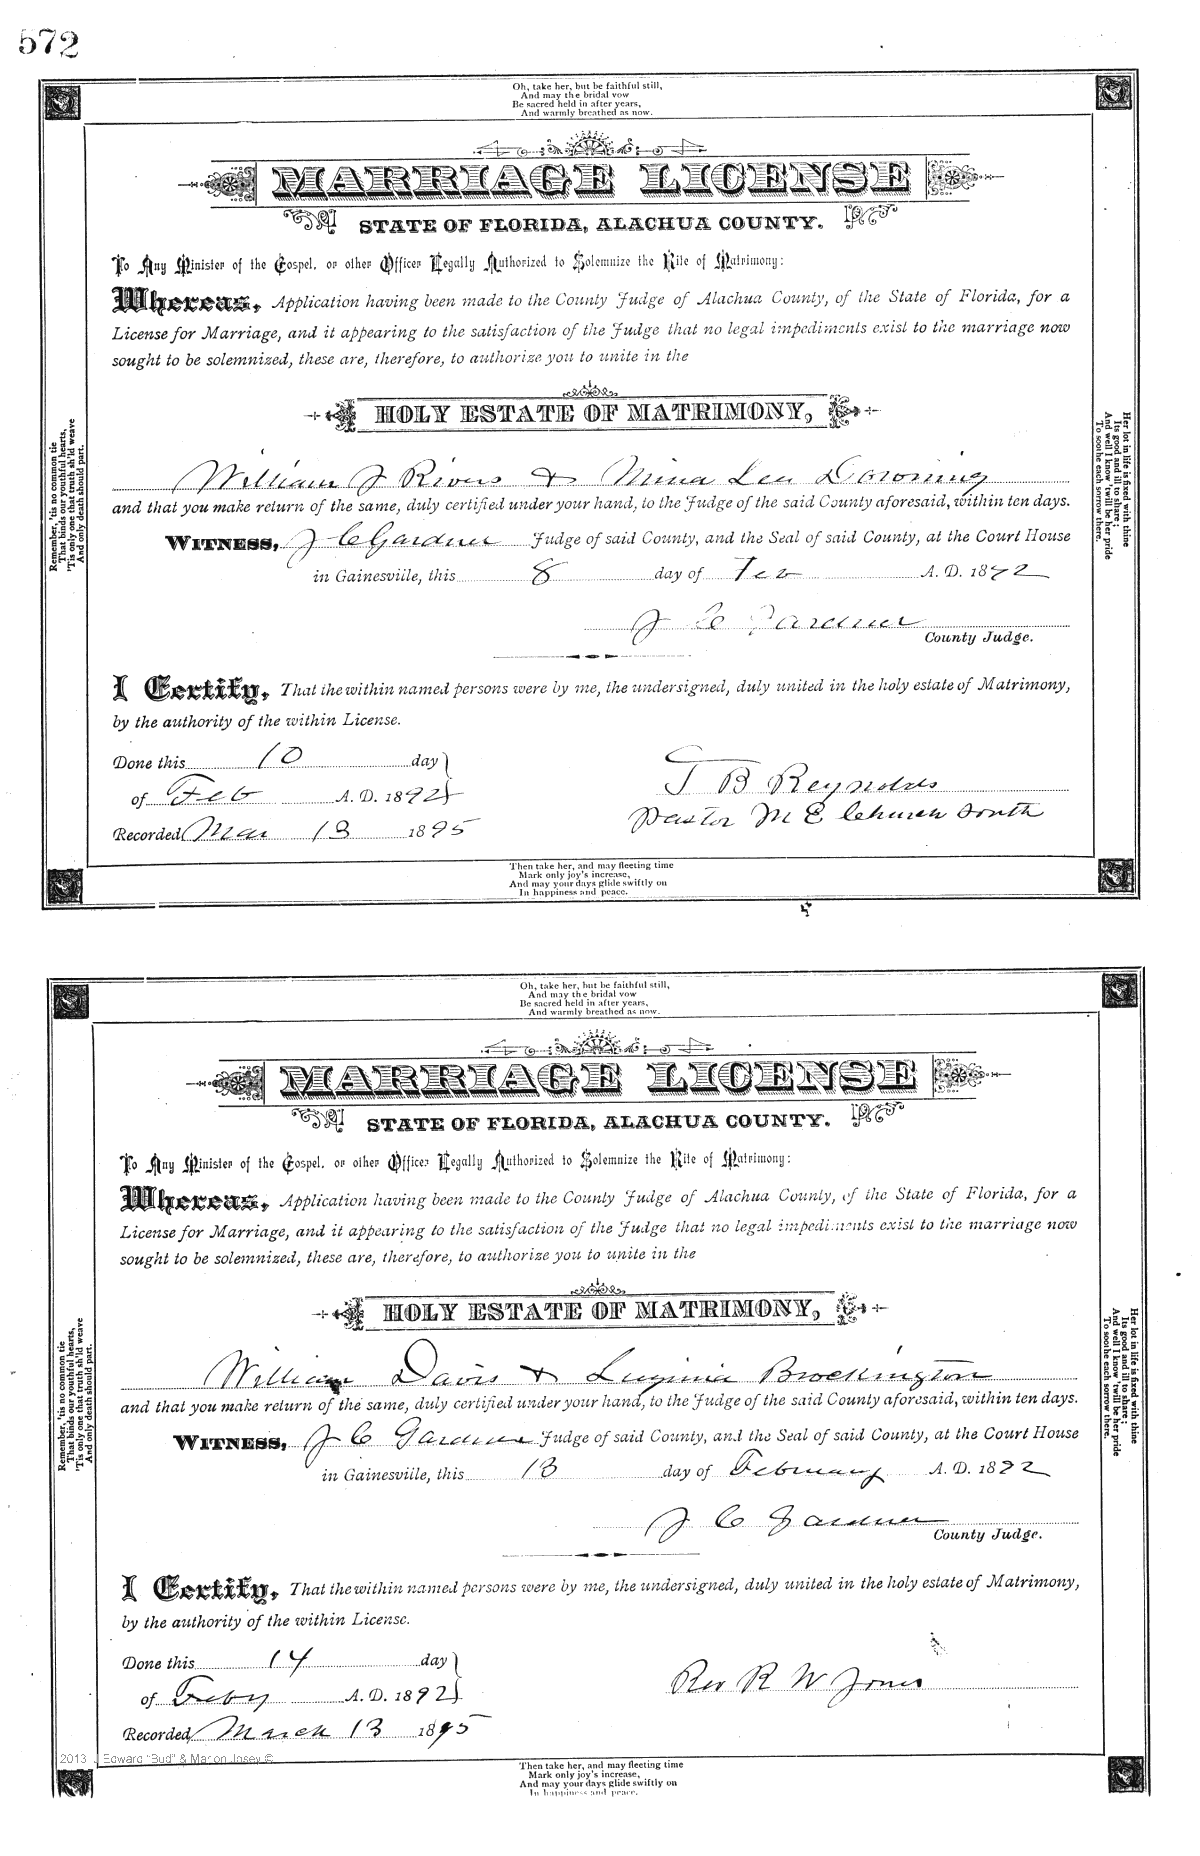 572
Oh, take her, but be faithful still,
And may the bridal vow
Be sacred held in after years,
And warmly breathed as now.
MARRIAGE LICENSE
STATE OF FLORIDA, ALACHUA COUNTY.
To Any Minister of the Gospel, or other Officer Legally Authorized to Solemnize the Rite of Matrimony:
Whereas, Application having been made to the County Judge of Alachua County, of the State of Florida, for a
License for Marriage, and it appearing to the satisfaction of the Judge that no legal impediments exist to the marriage now
sought to be solemnized, these are, therefore, to authorize you to unite in the
HOLY ESTATE OF MATRIMONY,
William J Rivers & Mina Lee Downing
and that you make return of the same, duly certified under your hand, to the Judge of the said County aforesaid, within ten days.
WITNESS, J C Gardner Judge of said County, and the Seal of said County, at the Court House
in Gainesville, this 8 day of Feb A. D. 1892
J C Gardner
County Judge.
I Certify, That the within named persons were by me, the undersigned, duly united in the holy estate of Matrimony,
by the authority of the within License.
Done this 10 day
of Feb A. D. 1892
Recorded Mar 13 1895
T B Reynolds
Pastor M E Church South
Then take her, and may fleeting time
Mark only joy's increase,
And may your days glide swiftly on
In happiness and peace.
Remember, 'tis no common tie
That binds our youthful hearts,
'Tis only one that truth sh'ld weave
And only death should part.
Her lot in life is fixed with thine
Its good and ill to share;
And well I know 'twill be her pride
To soothe each sorrow there.
Oh, take her, but be faithful still,
And may the bridal vow
Be sacred held in after years,
And warmly breathed as now.
MARRIAGE LICENSE
STATE OF FLORIDA, ALACHUA COUNTY.
To Any Minister of the Gospel, or other Officer Legally Authorized to Solemnize the Rite of Matrimony:
Whereas, Application having been made to the County Judge of Alachua County, of the State of Florida, for a
License for Marriage, and it appearing to the satisfaction of the Judge that no legal impediments exist to the marriage now
sought to be solemnized, these are, therefore, to authorize you to unite in the
HOLY ESTATE OF MATRIMONY,
William Davis & Luginia Brockington
and that you make return of the same, duly certified under your hand, to the Judge of the said County aforesaid, within ten days.
WITNESS, J C Gardner Judge of said County, and the Seal of said County, at the Court House
in Gainesville, this 13 day of February A. D. 1892
J C Gardner
County Judge.
I Certify, That the within named persons were by me, the undersigned, duly united in the holy estate of Matrimony,
by the authority of the within License.
Done this 14 day
of Feby A. D. 1892
Recorded March 13 1895
Rev R W Jones
2013 J Edward "Bud" & Marion Josey ©
Then take her, and may fleeting time
Mark only joy's increase,
And may your days glide swiftly on
In happiness and peace.
Remember, 'tis no common tie
That binds our youthful hearts,
'Tis only one that truth sh'ld weave
And only death should part.
Her lot in life is fixed with thine
Its good and ill to share;
And well I know 'twill be her pride
To soothe each sorrow there.